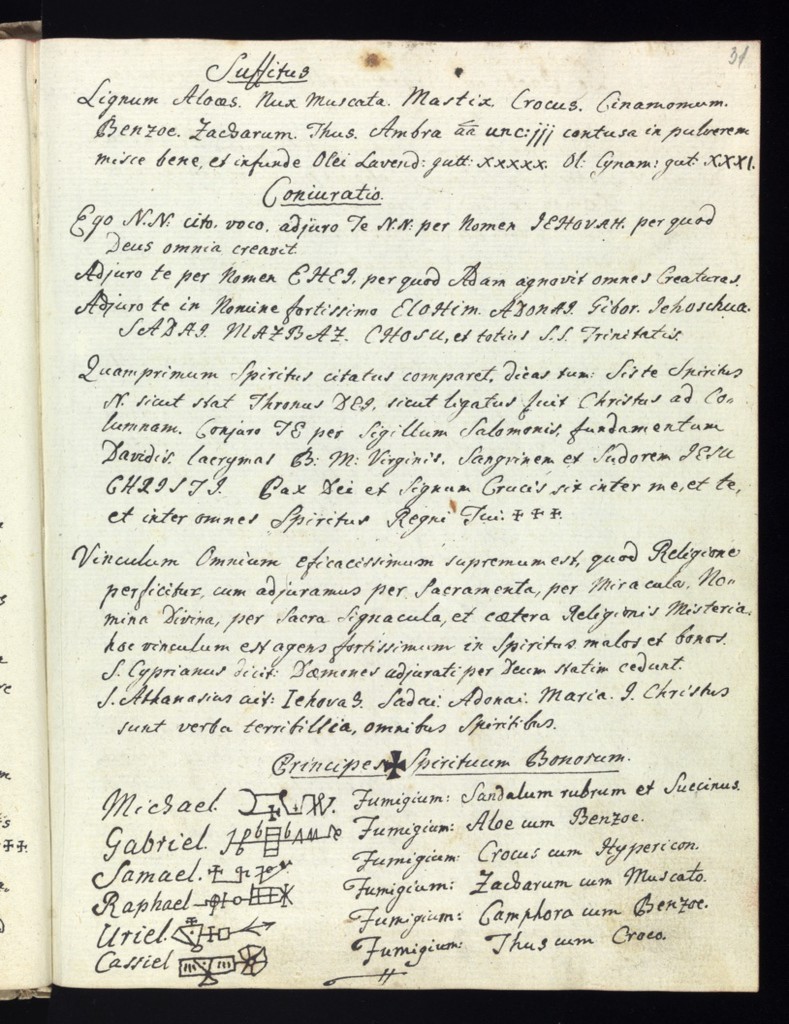 31
Suffitus
Lignum Aloes. Nux Muscata. Mastix. Crocus. Cinamomum.
Benzoe. Zacharum. Thus. Ambra āā unc: jjj contusa in pulverem
misce bene, et infunde Olei Lavend: gutt: XXXXX. Ol: Cynam: gut: XXXI.
Coniuratio.
Ego N.N: cito, voco, adjuro Te N.N: per Nomen JEHOVAH. per quod
Deus omnia creavit.
Adjuro te per Nomen EHEI, per quod Adam agnovit omnes Creaturas.
Adjuro te in Nomine fortissimo ElOHim. ADONAI. Gibor. Jehoschua.
SADAI. MAZBAZ. CHOSU, et totius S.S. Trinitatis.
Quamprimum Spiritus citatus comparet, dicas tum: Siste Spiritus
N. sicut stat Thronus DEI, sicut ligatus fuit Christus ad Co-
lumnam. Conjuro TE per Sigillum Salomonis, fundamentum
Davidis, lacrymas B: M: Virginis. Sangvinem et Sudorem JESU
CHRISTI. Pax Dei et Signum Crucis sit inter me, et te,
et inter omnes Spiritus Regni Tui. ‡ ‡ ‡.
Vinculum Omnium eficacissimum supremum est, quod Religione
perficitur, cum adjuramus per Sacramenta, per Miracula, No-
mina Divina, per Sacra Signacula, et cætera Religionis Misteria.
hoc vinculum est agens fortissimum in Spiritus malos et bonos.
S. Cyprianus dicit: Dæmones adjurati per Deum statim cedunt.
S. Athanasius ait: Iehovas. Sadai. Adonai. Maria. J. Christus
sunt verba terribillia, omnibus Spiritibus.
Principes ✠ Spirituum Bonorum.
Michael. Fumigium: Sandalum rubrum et Succinus.
Gabriel. Fumigium: Aloe cum Benzoe.
Samael. Fumigium: Crocus cum Hypericon.
Raphael Fumigium: Zacharum cum Muscato.
Uriel. Fumigium: Camphora cum Benzoe.
Cassiel Fumigium: Thus cum Croco.